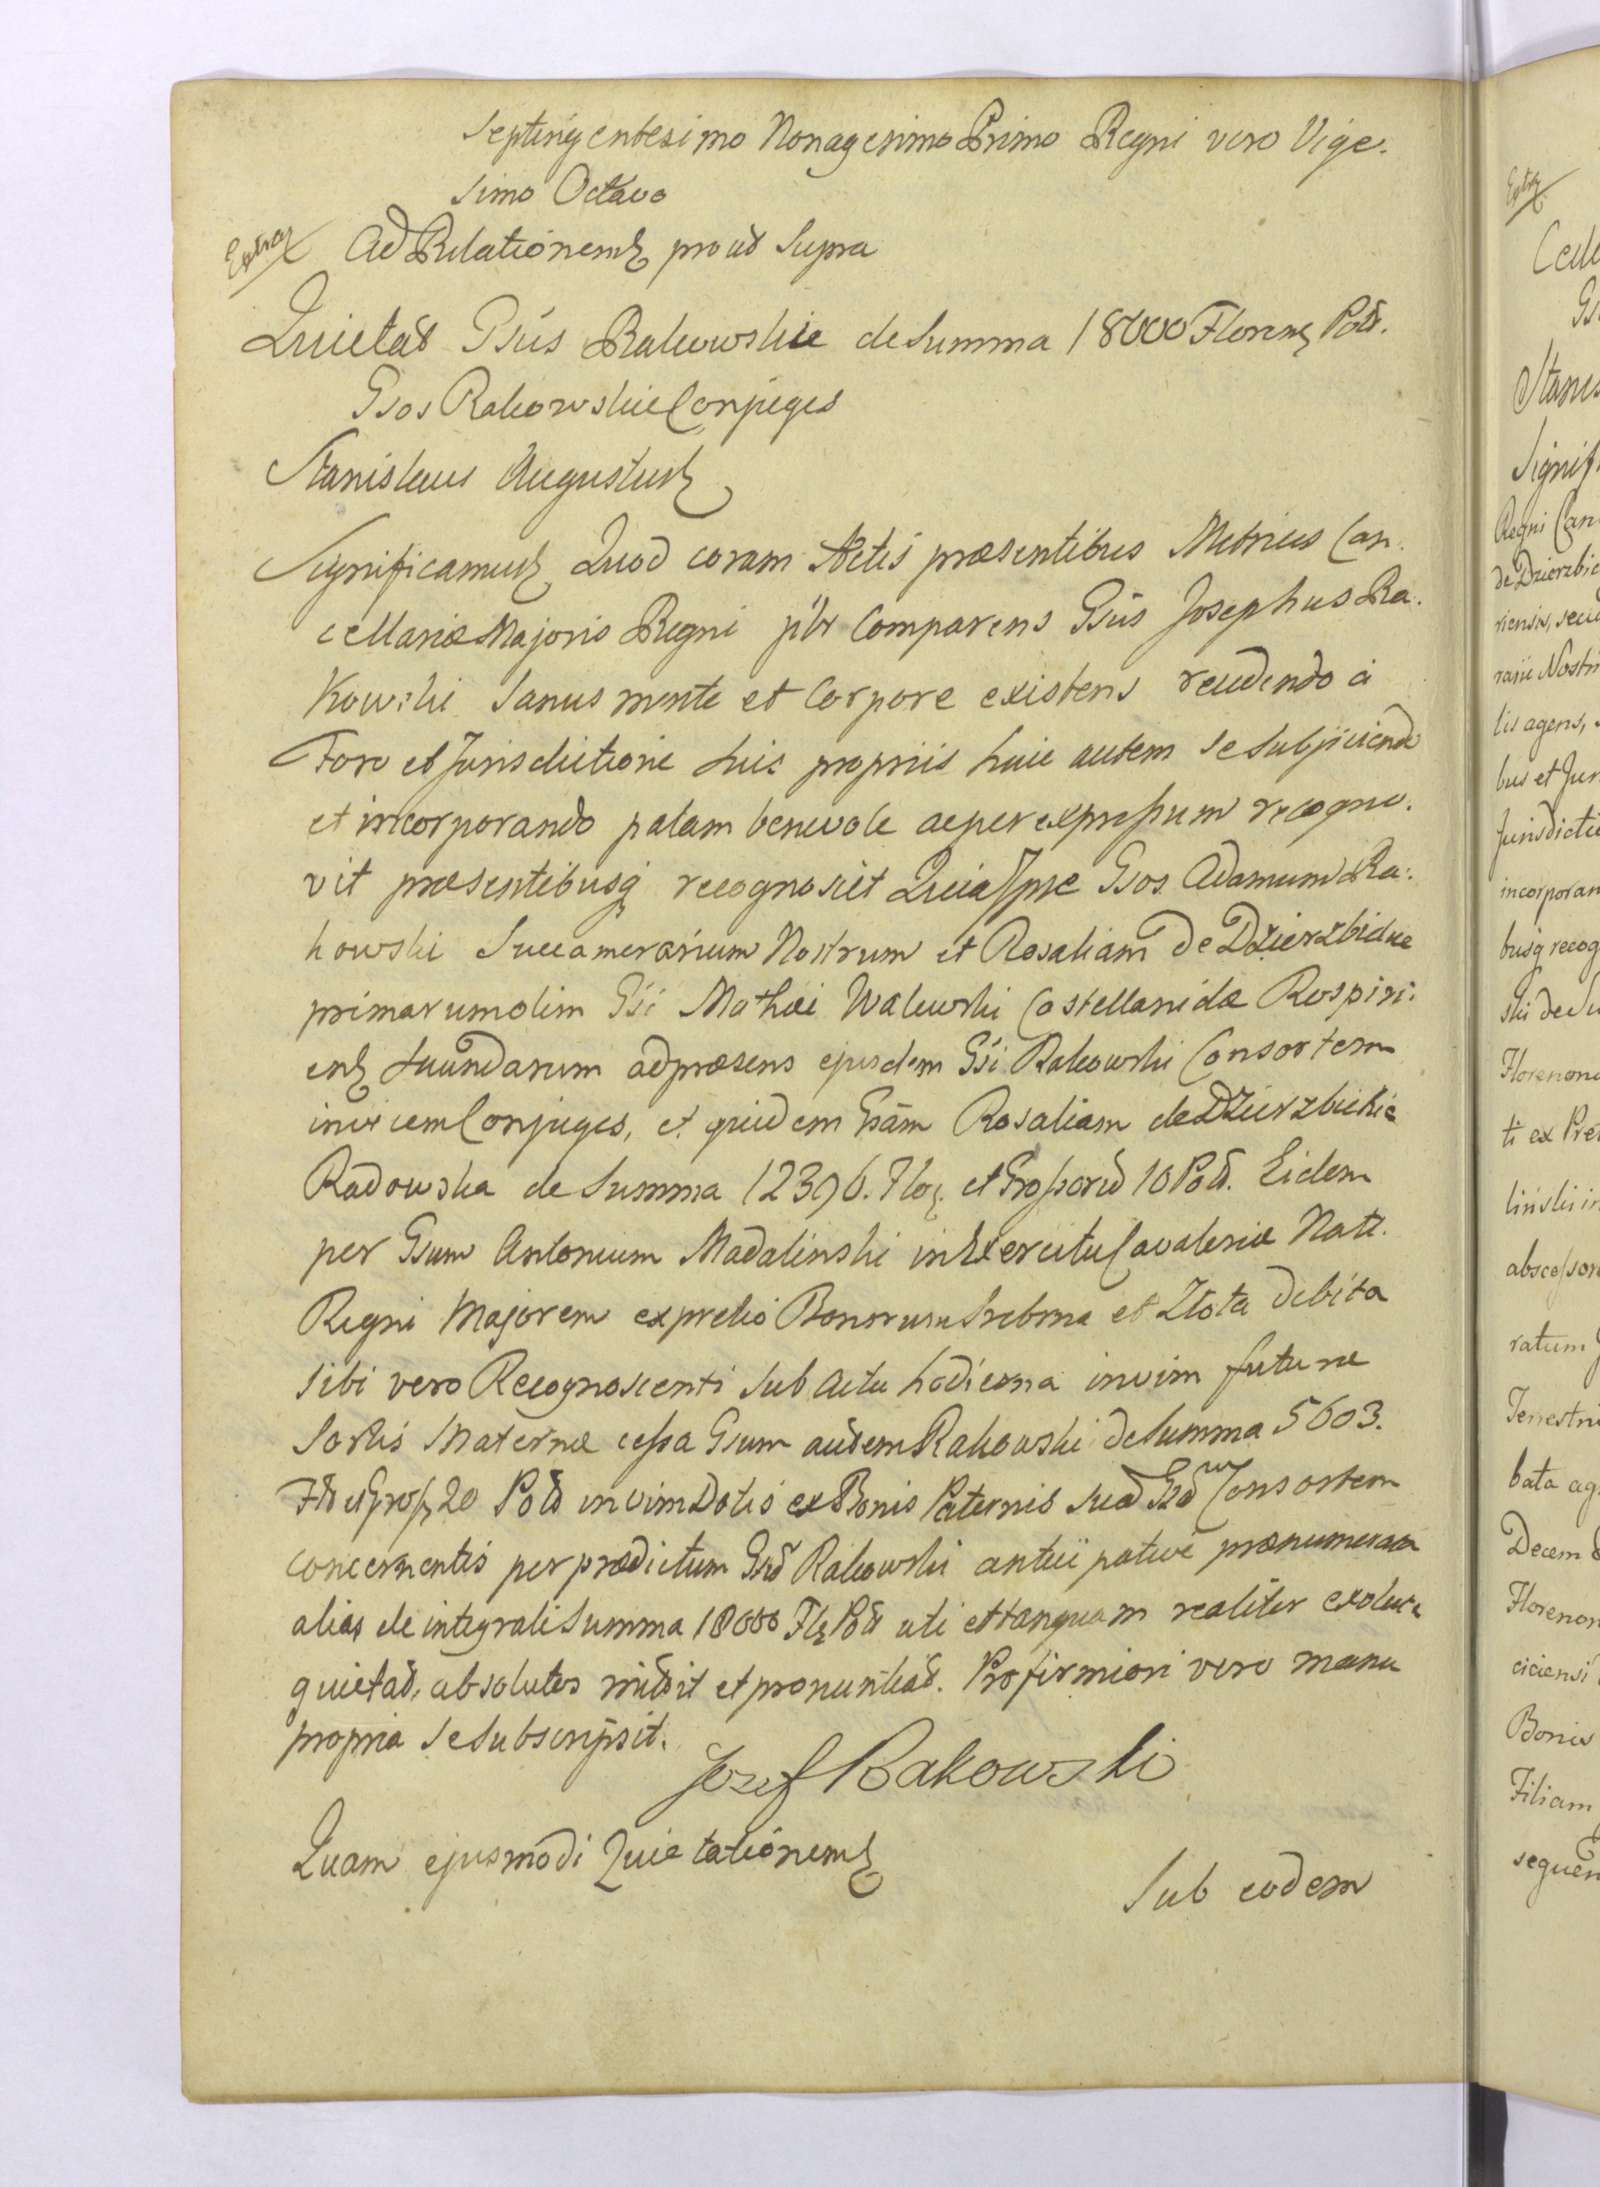 Septingentesimo Nonagesimo Primo Regni vero Vige.
simo Octavo
Extrag Ad Relationem prout Supra
Quietat Gsus Rakowskie de Summa 18000 Floren Pol.
Gsos Rakowskie Conjuges
Stanislaus Augustus
Significamus Quod coram Actis præsentibus Metrices Can.
cellariæ Majoris Regni plr Comparens Gsus Josephus Ra.
kowski Sanus mente et Corpore existens recedendo a
Foro et Jurisdictione suis propriis huic autem se subjiciendo
et incorporando palam benevole ac per expressum recogno.
vit præsentibusq recognoscit Quia Ipse Gsos Adamum Ra:
kowski Succamerarium Nostrum et Rosaliam de Dzierzbickie
primarum olim Gsi Mathæi Walewski Castellanidæ Rospiri:
en secundarum ad præsens ejusdem Gsi Rakowski Consortem
invicem Conjuges, et quidem Gsam Rosaliam de Dzierzbickie
Radowska de Summa 12396. Flo. et Grossorum 10 Pol. Eidem
per Gsum Antonium Madalinski in Exercitu Cavaleriæ Natt.
Regni Majorem ex pretio Bonorum Srebrna et Zlota debita
sibi vero Recognoscenti sub Actu hodierna in vim futuræ
Sortis Maternæ cessa Gsum autem Rakowski de Summa 5603.
Fl et Gross 20 Pol in vim Dotis ex Bonis Paternis suam Gsam Consortem
concernentis per prædictum Gsum Rakowski anticipative prænumerata
alias de integrali Summa 18000 Fl Pol uti et tanquam realiter exoluta
quietat, absolutos mittit et pronuntiat. Pro firmiori vero manu
propria se subscripsit.
Jozef Rakowski
Quam ejusmodi Quietationem
Sub eodem
Extr
Stanis
Signif
Regni Can
de Dzierzbic
riensis, secu
raiie Nostri
lis agens,
bus et Jur
Jurisdictio
incorporan
busq recog
ski de Su
Florenon
ti ex Pre
linski in
abscessor
ratum
Terrestri
bata ag
Decem
Florenon
ciciensi
Bonis
Filiam
sequen